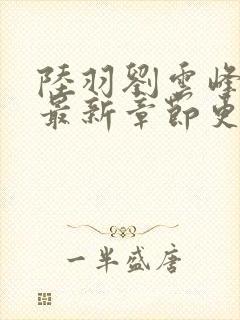 陸羽劉雲峰
最新章節更
一半盛唐